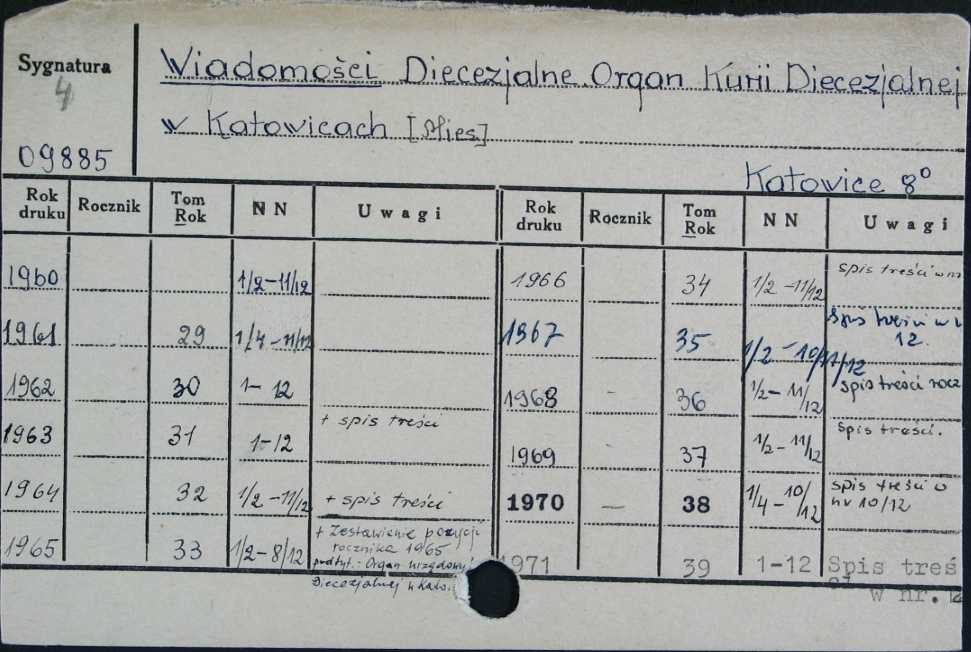 Sygnatura
4
09885
Wiadomości Diecezjalne. Organ Kurii Diecezjalnej
w Katowicach [Mies.]
Katowice 8°
Rok druku Rocznik Tom Rok N N Uwagi
1960 1/2-11/12
1961 29 1/4-11/12
1962 30 1-12
1963 31 1-12 + spis treści
1964 32 1/2-11/12 + spis treści
1965 33 1/2-8/12 + Zestawienie pozycji
rocznika 1965
podtyt.: Organ urzędowy
Diecezjalnej w Kato
Rok druku Rocznik Tom Rok N N Uwagi
1966 34 1/2-11/12 spis treści w nr
1967 35 1/2-10/11/12 Spis treści w
12.
1968 - 36 1/2-11/12 spis treści rocz
1969 37 1/2-11/12 spis treści.
1970 - 38 1/4-10/12 spis treści w
nr 10/12
1971 39 1-12 Spis treś
w nr. 12